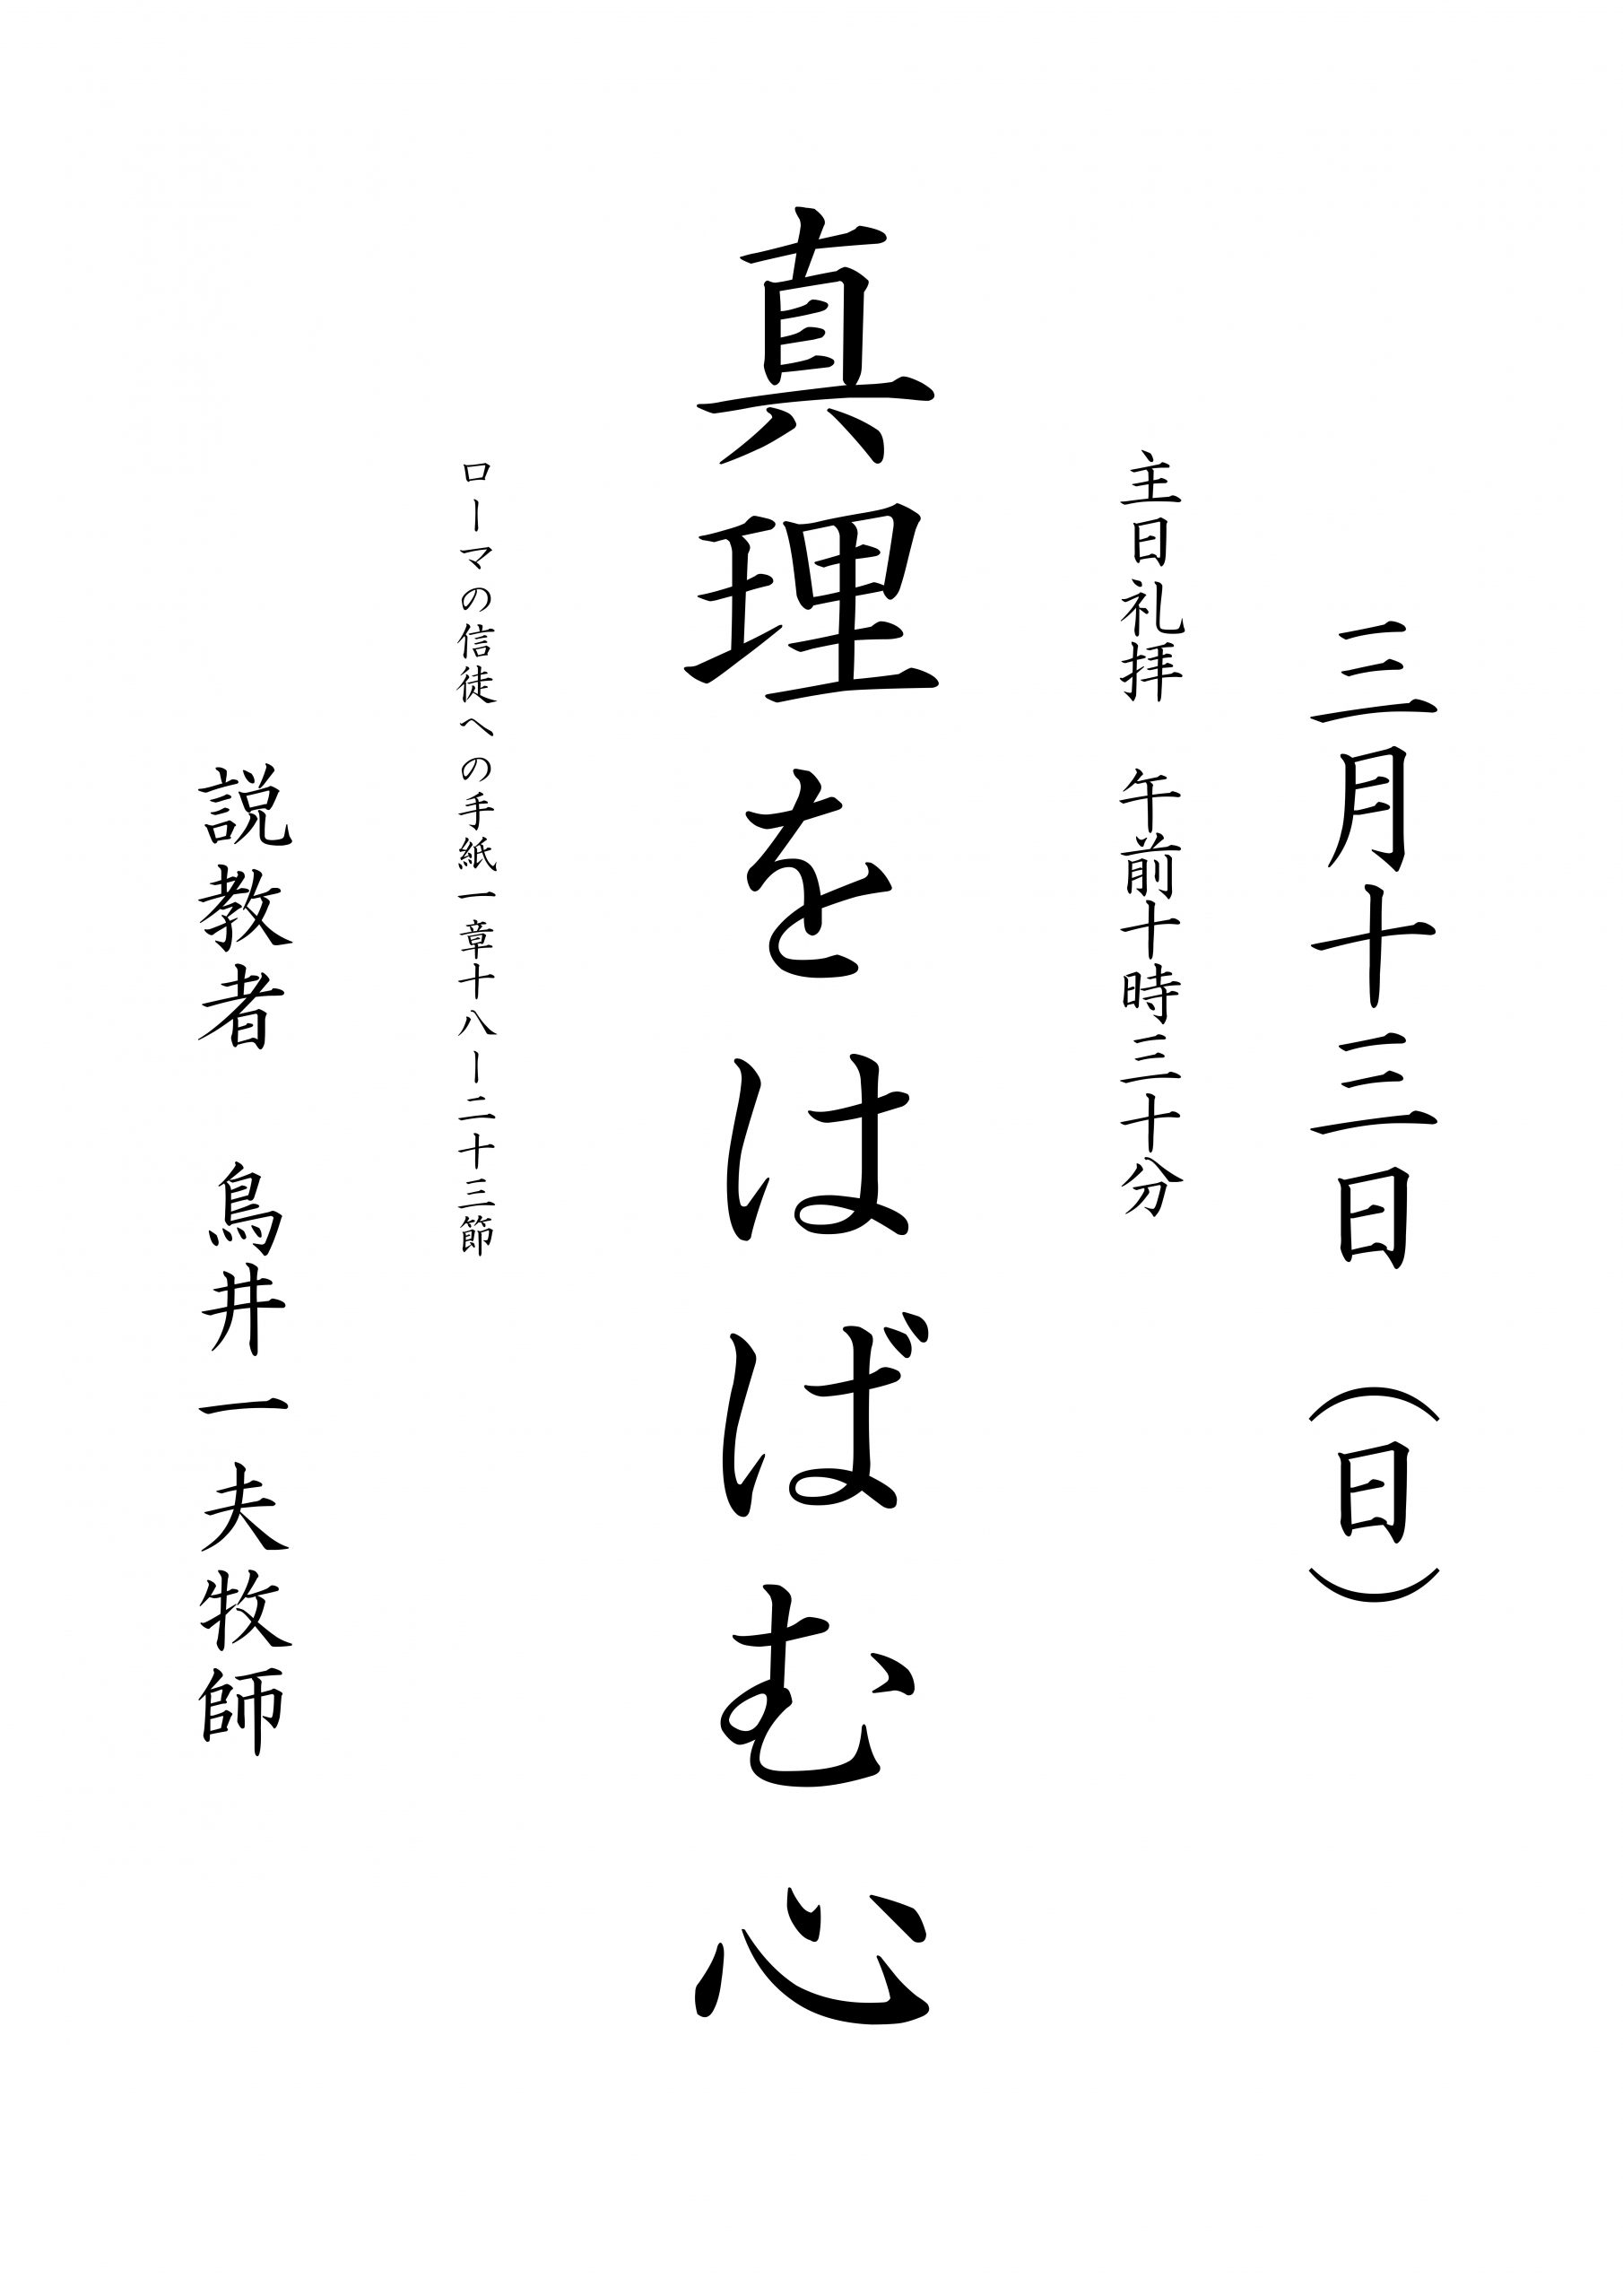 三月十三日（日）
主日礼拝　午前十時三十分
真理をはばむ心
ローマの信徒への手紙一章十八ー二十三節
説教者　烏井一夫牧師